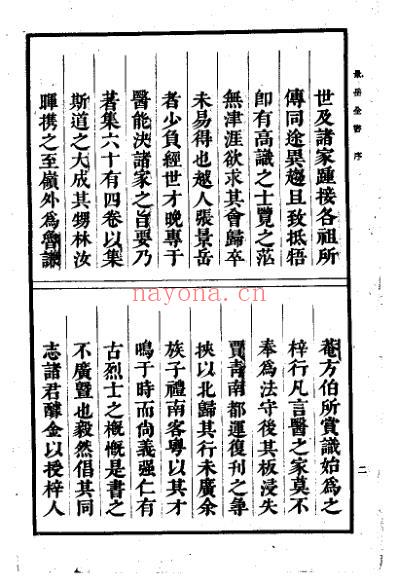 景岳全書 序
世及諸家踵接各祖所
傳同途異趨且致抵牾
卽有高識之士覽之茫
無津涯欲求其會歸卒
未易得也越人張景岳
者少負經世才晚專于
醫能決諸家之旨要乃
著集六十有四卷以集
斯道之大成其甥林汝
暉攜之至嶺外爲魯謙
菴方伯所賞識始爲之
梓行凡言醫之家莫不
奉爲法守後其板浸失
賈青南都運復刊之尋
挾以北歸其行未廣余
族子禮南客粵以其才
鳴于時而尚義强仁有
古烈士之概慨是書之
不廣暨也毅然倡其同
志諸君醵金以授梓人
二
nayona.cn